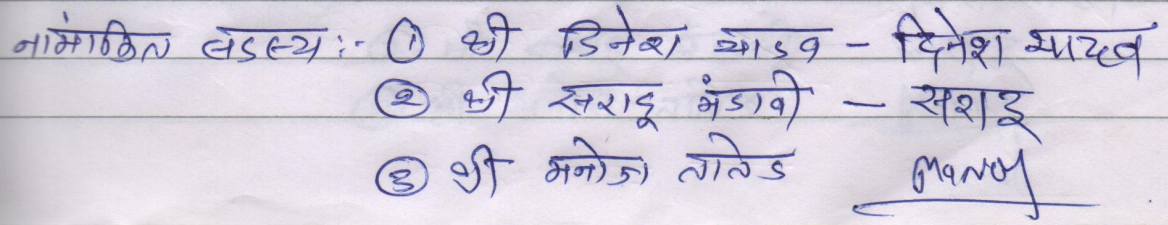 नामांकित सदस्य :- ① श्री दिनेश यादव - दिनेश यादव
② श्री सराडू मंडावी - सराडू
③ श्री मनोज तातेड Manoj